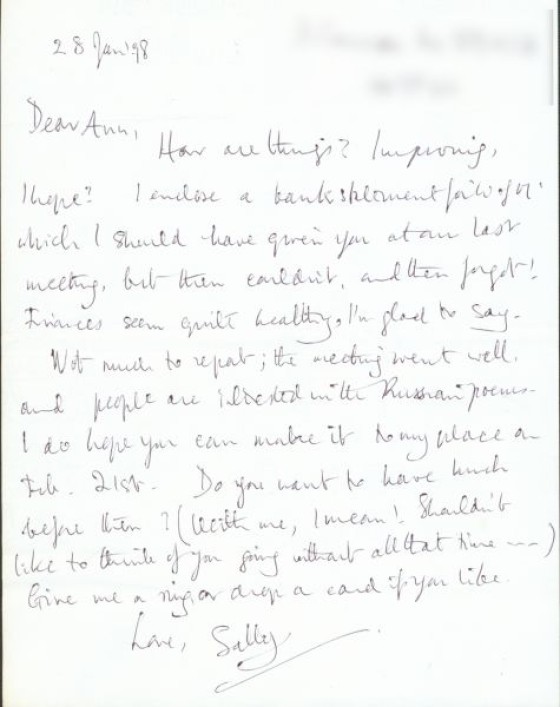 28 Jan '98
Dear Ann,
How are things? Improving,
I hope? I enclose a bank statement for
which I should have given you at our last
meeting, but then couldn't, and then forgot!
Finances seem quite healthy, I'm glad to say.
Not much to report; the meeting went well,
and people are interested in the Russian poems.
I do hope you can make it to my place on
Feb. 21st. Do you want to have lunch
before then? (With me, I mean! Shouldn't
like to think of you going without all that time ---)
Give me a ring or drop a card if you like.
Love, Sally